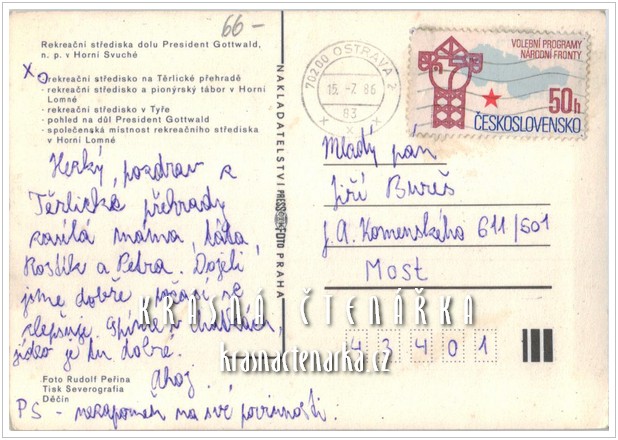 66-
Rekreační střediska dolu President Gottwald,
n. p. v Horní Suché
x
- rekreační středisko na Těrlické přehradě
- rekreační středisko a pionýrský tábor v Horní
Lomné
- rekreační středisko v Tyře
- pohled na důl President Gottwald
- společenská místnost rekreačního střediska
v Horní Lomné
Hezký pozdrav z
Těrlické přehrady
zasílá máma, táta,
Rostík a Petra. Dojeli
jsme dobře počasí se
zlepšuje. Spíme v
jídlo je tu dobré.
Ahoj.
PS - nezapomeň na své povinnosti.
Foto Rudolf Peřina
Tisk Severografia
Děčín
NAKLADATELSTVÍ PRESSFOTO PRAHA
70200 OSTRAVA 2
15. -7. 86
83
x x x
VOLEBNÍ PROGRAMY
NÁRODNÍ FRONTY
50h
ČESKOSLOVENSKO
Mladý pán
Jiří Bureš
J. A. Komenského 611/501
Most
43401
KRÁSNÁ ČTENÁŘKA
krasnactenarka.cz